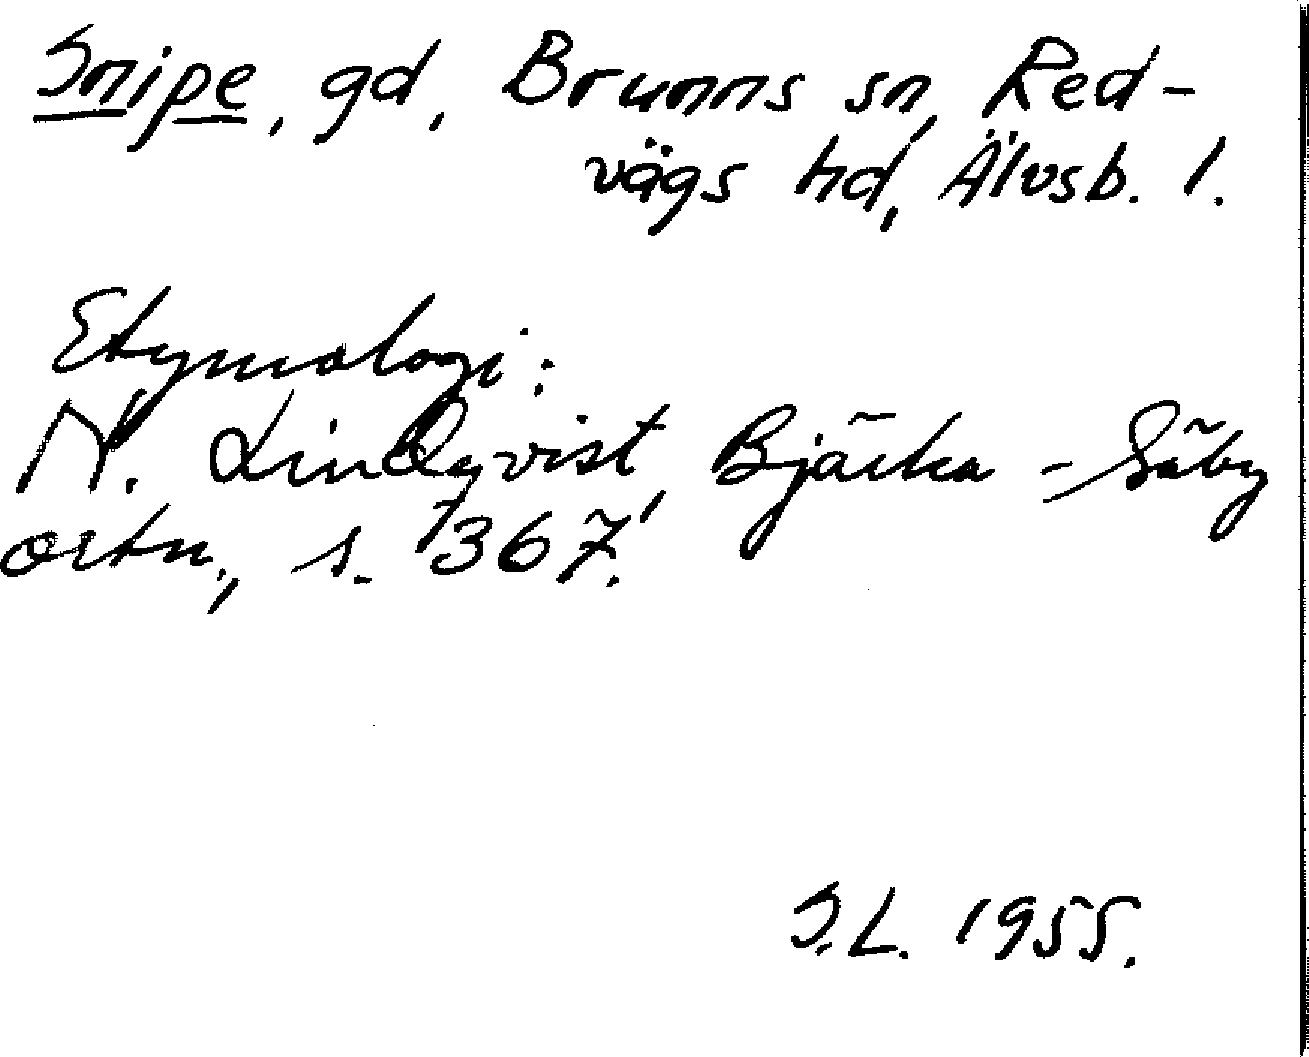 Snipe, gd, Brunns sn, Red-
vägs hd, Älvsb. l.
Etymologi:
N. Lindqvist, Bjärka-Säby
ortn., s. 367.
S.L. 1955.